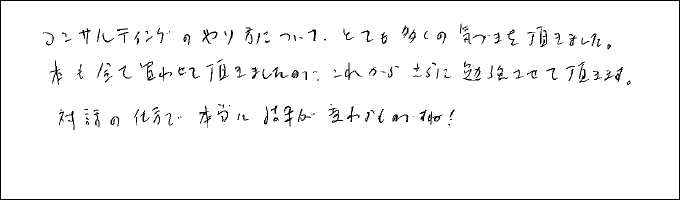 コンサルティングのやり方について、とても多くの気づきを頂きました。
本も全て買わせて頂きましたので、これからさらに勉強させて頂きます。
対話の仕方で本当に結果が変わるものですね！